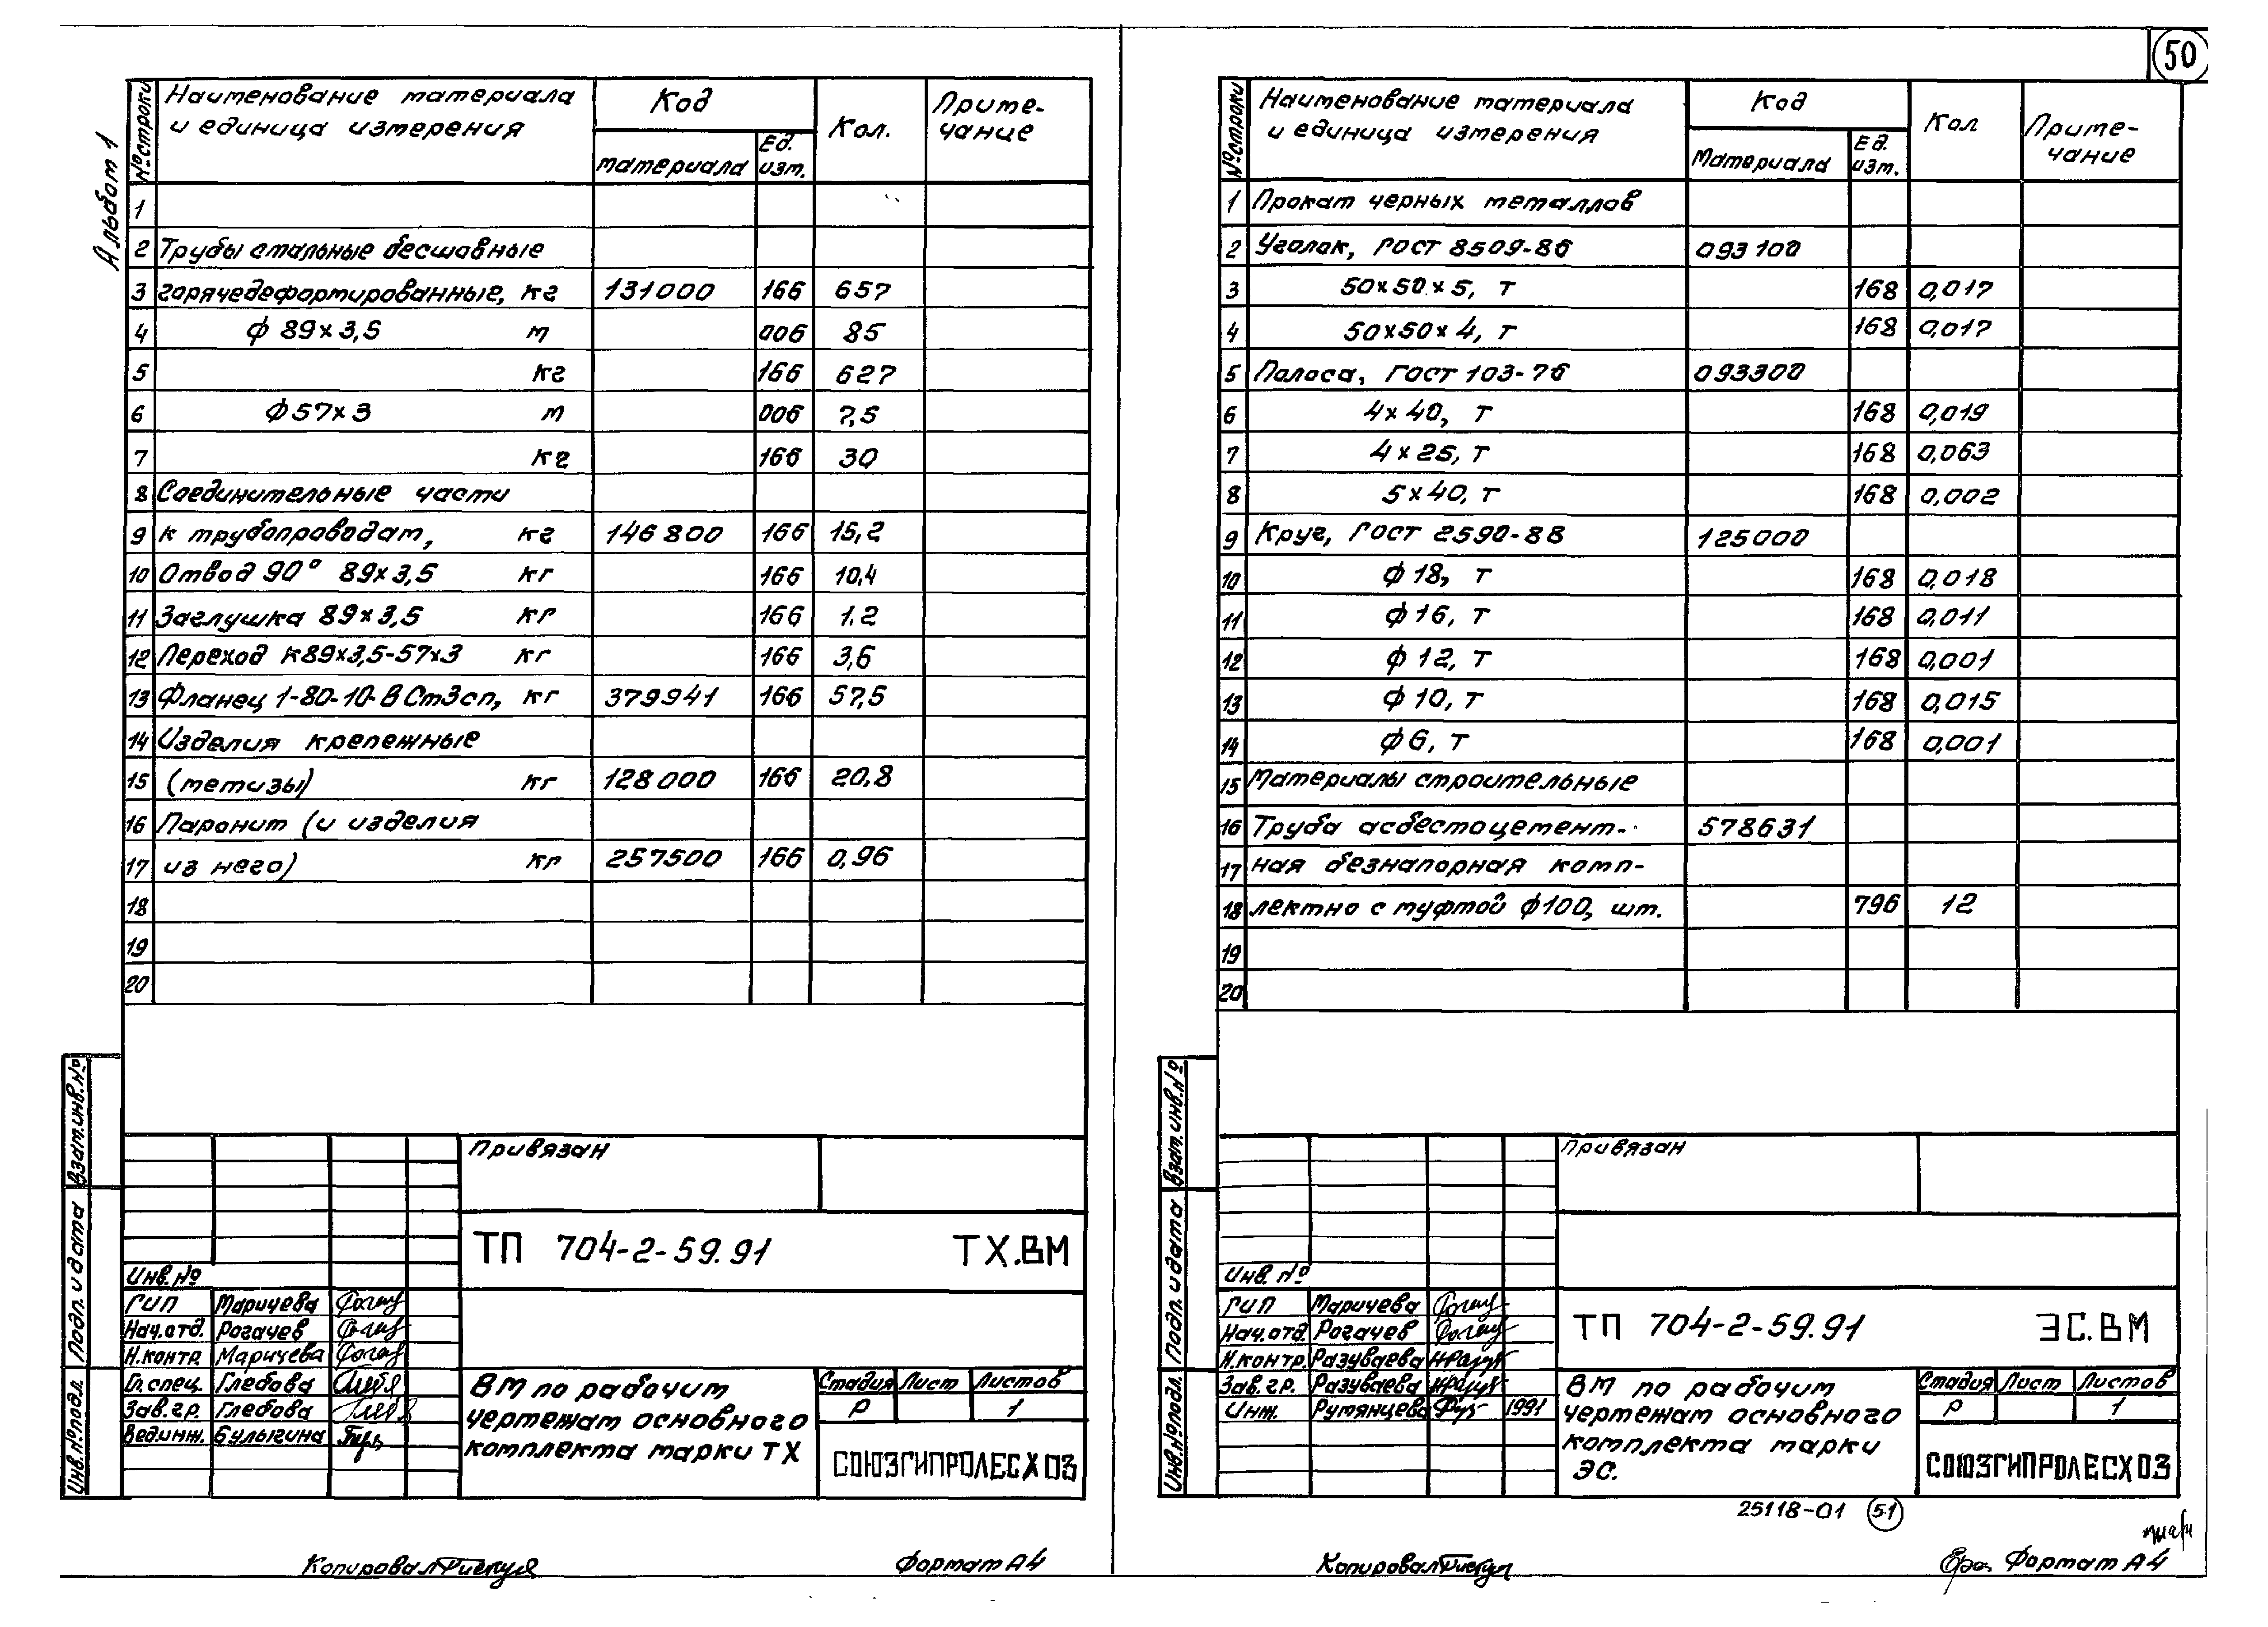 50
Альбом 1
№ строки | Наименование материала и единица измерения | Код | Кол. | Примечание
материала | Ед. изм.
1
2 Трубы стальные бесшовные
3 горячедеформированные, кг 131000 166 657
4 ф 89х3,5 м 006 85
5 кг 166 627
6 ф57х3 м 006 7,5
7 кг 166 30
8 Соединительные части
9 к трубопроводам, кг 146800 166 15,2
10 Отвод 90° 89х3,5 кг 166 10,4
11 Заглушка 89х3,5 кг 166 1.2
12 Переход К89х3,5-57х3 кг 166 3,6
13 Фланец 1-80-10-В Ст3сп, кг 379941 166 57,5
14 Изделия крепежные
15 (метизы) кг 128000 166 20,8
16 Паронит (и изделия
17 из него) кг 257500 166 0,96
18
19
20
Взам.инв.№
Подп. и дата
Инв.№подл.
Привязан
ТП 704-2-59.91 ТХ.ВМ
Инв.№
ГИП Маричева
Нач.отд. Рогачев
Н.контр. Маричева
Гл.спец. Глебова
Зав.гр. Глебова
Вед.инж. Булыгина
ВМ по рабочим
чертежам основного
комплекта марки ТХ
Стадия Лист Листов
Р 1
СОЮЗГИПРОЛЕСХОЗ
Копировал
Формат А4
№ строки | Наименование материала и единица измерения | Код | Кол | Примечание
Материала | Ед. изм.
1 Прокат черных металлов
2 Уголок, ГОСТ 8509-86 093100
3 50х50х5, т 168 0,017
4 50х50х4, т 168 0,017
5 Полоса, ГОСТ 103-76 093300
6 4х40, т 168 0,019
7 4х25, т 168 0,063
8 5х40, т 168 0,002
9 Круг, ГОСТ 2590-88 125000
10 ф 18, т 168 0,018
11 ф 16, т 168 0,011
12 ф 12, т 168 0,001
13 ф 10, т 168 0,015
14 ф 6, т 168 0,001
15 Материалы строительные
16 Труба асбестоцемент- 578631
17 ная безнапорная комп-
18 лектно с муфтой ф100, шт. 796 12
19
20
Взам.инв.№
Подп. и дата
Инв.№подл.
Привязан
Инв. №
ТП 704-2-59.91 ЭС.ВМ
ГИП Маричева
Нач.отд. Рогачев
Н.контр. Разуваева
Зав.гр. Разуваева
Инж. Румянцева 1991
ВМ по рабочим
чертежам основного
комплекта марки
ЭС.
Стадия Лист Листов
Р 1
СОЮЗГИПРОЛЕСХОЗ
25118-01 51
Копировал
Формат А4